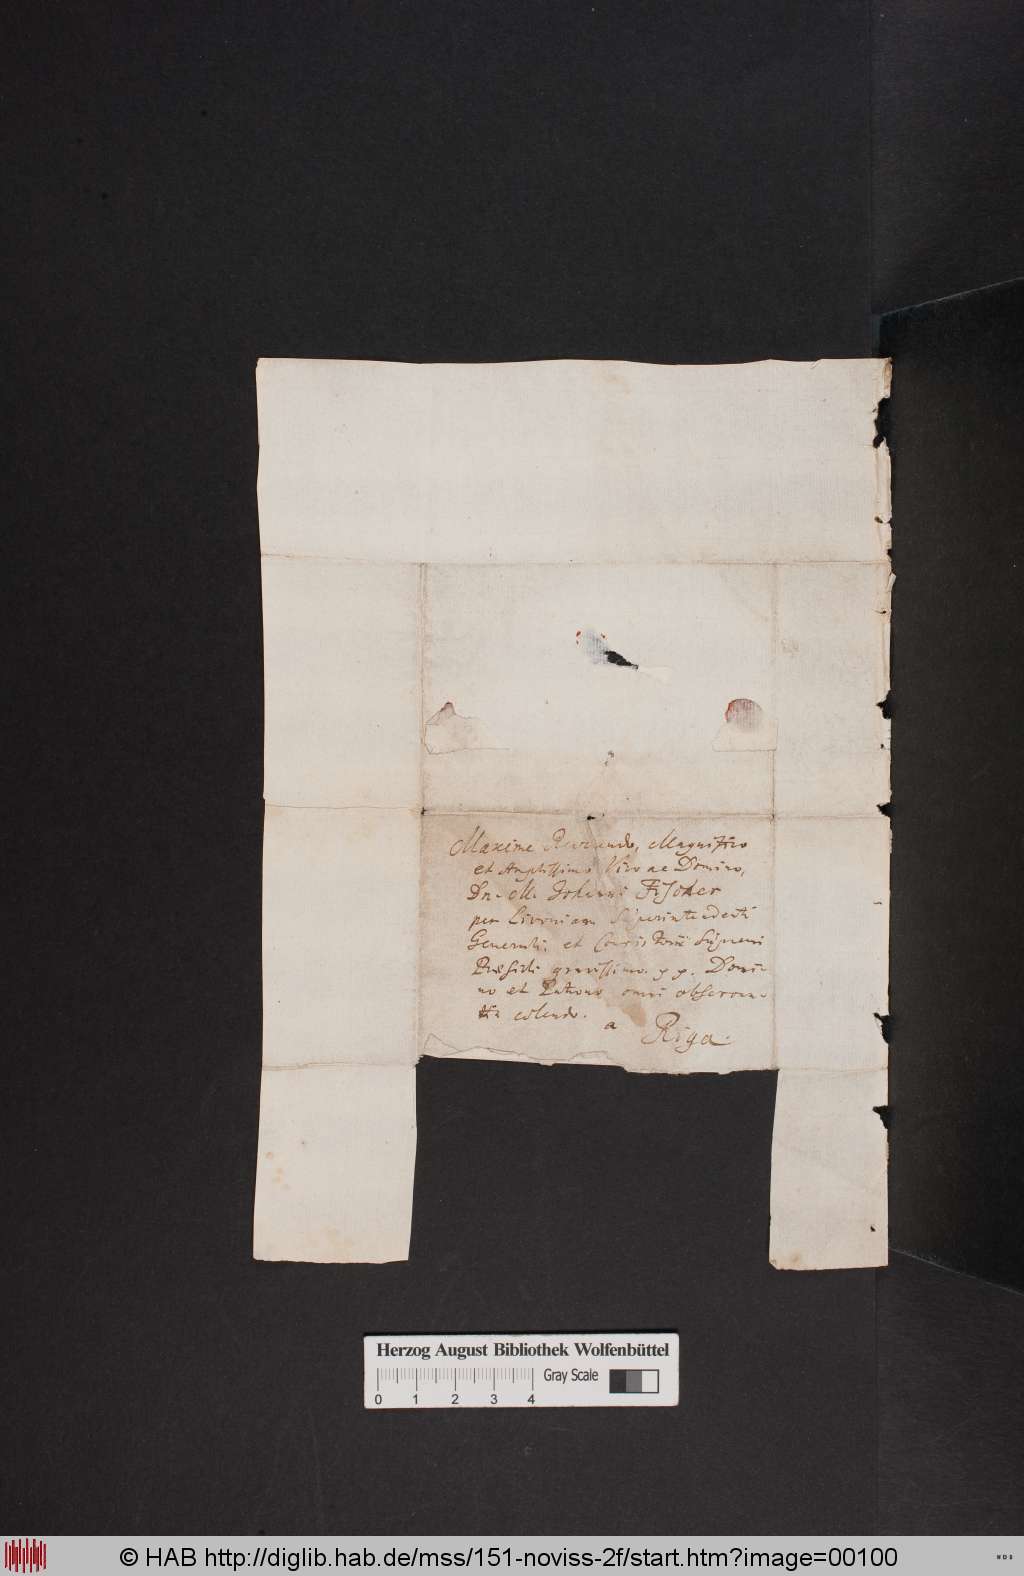 Maxime Reverendo, Magnifico
et Amplissimo Viro ac Domino,
Dn. M. Johanni Fischer
per Livoniam Superintendenti
Generali, et Consistorii Supremi
Præsidi gravissimo. p p. Domi-
no et Patrono omni observan-
tia colendo.
a Riga.
Herzog August Bibliothek Wolfenbüttel
Gray Scale
0 1 2 3 4
© HAB http://diglib.hab.de/mss/151-noviss-2f/start.htm?image=00100